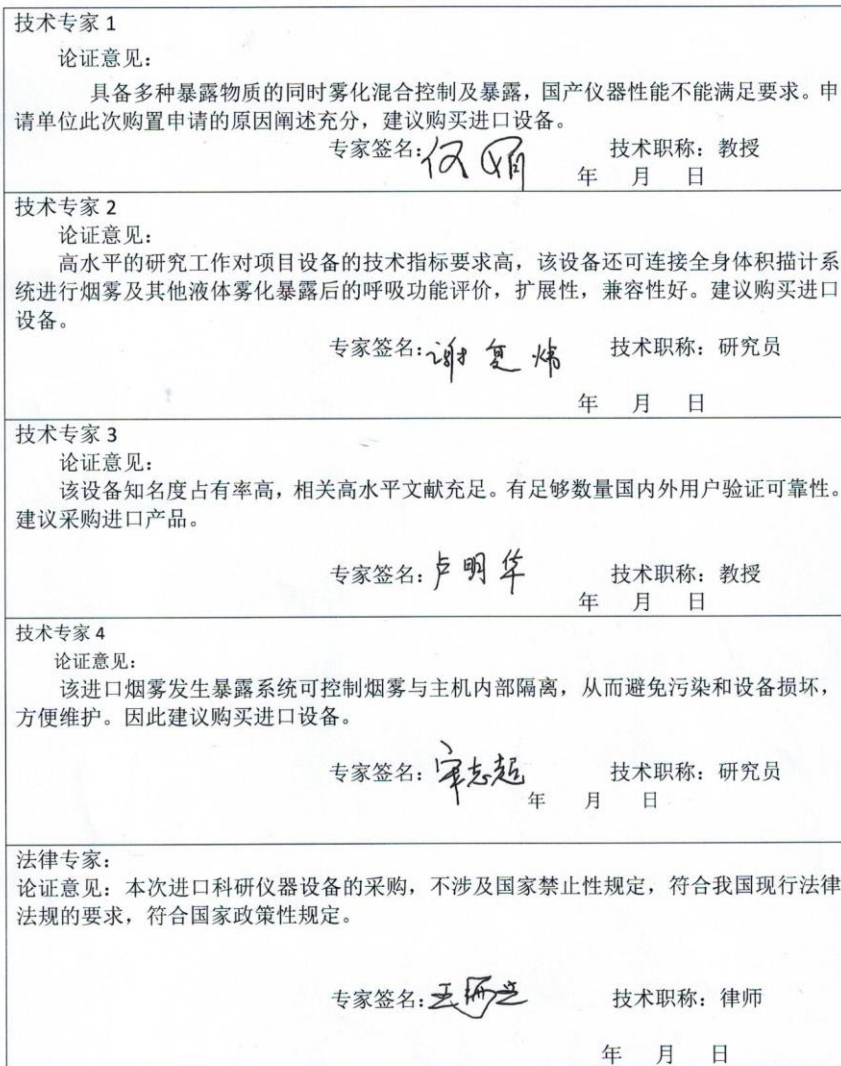 技术专家 1
论证意见：
具备多种暴露物质的同时雾化混合控制及暴露，国产仪器性能不能满足要求。申
请单位此次购置申请的原因阐述充分，建议购买进口设备。
专家签名： 技术职称：教授
年 月 日
技术专家 2
论证意见：
高水平的研究工作对项目设备的技术指标要求高，该设备还可连接全身体积描计系
统进行烟雾及其他液体雾化暴露后的呼吸功能评价，扩展性，兼容性好。建议购买进口
设备。
专家签名：谢复炜 技术职称：研究员
年 月 日
技术专家 3
论证意见：
该设备知名度占有率高，相关高水平文献充足。有足够数量国内外用户验证可靠性。
建议采购进口产品。
专家签名：卢明华 技术职称：教授
年 月 日
技术专家 4
论证意见：
该进口烟雾发生暴露系统可控制烟雾与主机内部隔离，从而避免污染和设备损坏，
方便维护。因此建议购买进口设备。
专家签名： 技术职称：研究员
年 月 日
法律专家：
论证意见：本次进口科研仪器设备的采购，不涉及国家禁止性规定，符合我国现行法律
法规的要求，符合国家政策性规定。
专家签名： 技术职称：律师
年 月 日